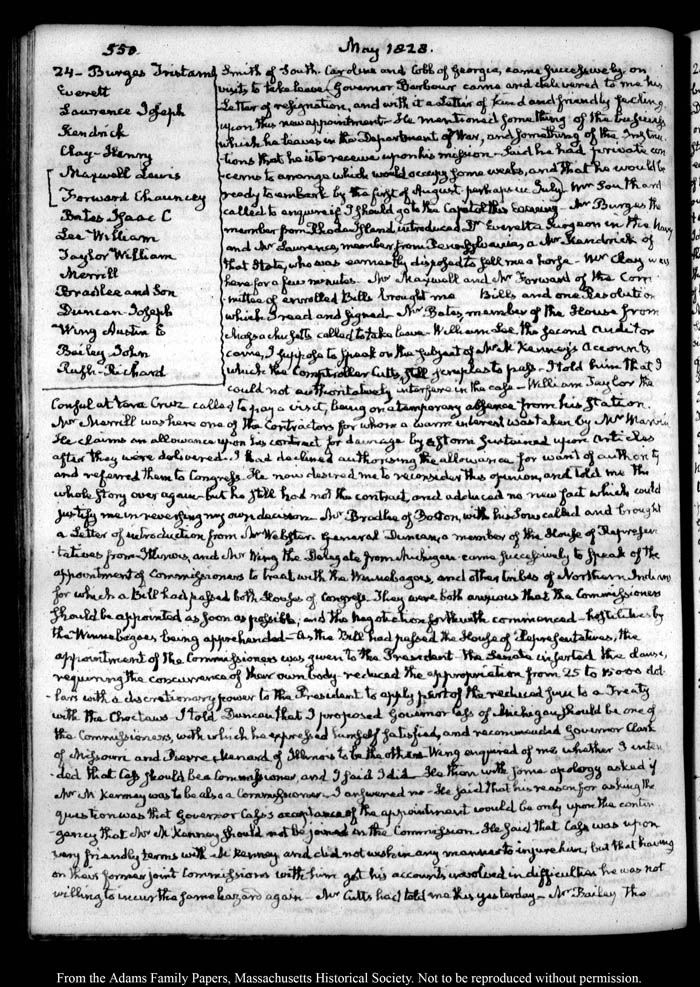 550
May 1828.
24 - Burges Tristam
Everett
Lawrence Joseph
Kendrick
Clay - Henry
Maxwell Lewis
Forward Chauncey
Bates Isaac C
Lee William
Taylor William
Merrill
Bradlee and Son
Duncan Joseph
Wing Austin E
Bailey John
Rush - Richard
Smith of South Carolina and Cobb of Georgia, came successively on
visits to take leave. Governor Barbour came and delivered to me his
Letter of resignation, and with it a Letter of kind and friendly feeling
upon this new appointment. He mentioned something of the business
which he leaves in the Department of War, and something of the Instruc-
tions that he is to receive upon his mission - Said he had private con-
cerns to arrange which would occupy some weeks, and that he would be
ready to embark by the first of August perhaps in July. Mr Southard
called to enquire if I should go to the Capitol this Evening - Mr Burges the
member from Rhode Island introduced Dr Everett a Surgeon in the Navy
and Mr Lawrence, member from Pennsylvania, a Mr Kendrick of
that State, who was earnestly disposed to sell me a horse. Mr Clay was
here for a few minutes. Mr Maxwell and Mr Forward of the Com-
mittee of enrolled Bills brought me Bills and one Resolution
which I read and signed. Mr Bates, member of the House from
Massachusetts called to take leave. William Lee the second Auditor
came, I suppose to speak on the subject of Mr M<sup>c</sup>Kenney's Accounts,
which the Comptroller Cutts, still scruples to pass - I told him that I
could not authoritatively interfere in the case - William Taylor the
Consul at Vera Cruz called to pay a visit, being on a temporary absence from his Station.
Mr Merrill was here one of the Contractors for whom a warm interest was taken by Mr Marvin
He claims an allowance upon his contract for damage by a storm sustained upon articles
after they were delivered. I had declined authorising the allowance for want of authority
and referred them to Congress. He now desired me to reconsider this opinion, and told me the
whole story over again - but he still had not the contract, and adduced no new fact which could
justify me in reversing my own decision. Mr Bradlee of Boston, with his Son called and brought
a Letter of introduction from Mr Webster. General Duncan, a member of the House of Represen-
tatives from Illinois, and Mr Wing the Delegate from Michigan came successively to speak of the
appointment of Commissioners to treat with the Winnebagoes, and other tribes of Northern Indians
for which a Bill had passed both Houses of Congress. They were both anxious that the Commissioners
should be appointed as soon as possible, and the negotiation forthwith commenced - hostilities by
the Winnebagoes being apprehended - As the Bill had passed the House of Representatives, the
appointment of the Commissioners was given to the President - the Senate inserted the clause,
requiring the concurrence of their own body - reduced the appropriation from 25 to 15000 dol-
lars with a discretionary power to the President to apply part of the reduced sum to a Treaty
with the Choctaws. I told Duncan that I proposed Governor Cass of Michigan should be one of
the Commissioners, with which he expressed himself satisfied, and recommended Governor Clark
of Missouri and Pierre Menard of Illinois to be the others. Wing enquired of me whether I inten-
ded that Cass should be a Commissioner, and I said I did - He then with some apology asked if
Mr M<sup>c</sup>Kenney was to be also a Commissioner - I answered no - He said that his reason for asking the
question was that Governor Cass's acceptance of the appointment would be only upon the contin-
gency that Mr M<sup>c</sup>Kenney should not be joined in the Commission. He said that Cass was upon
very friendly terms with M<sup>c</sup>Kenney and did not wish in any manner to injure him, but that having
on their former joint Commissions with him got his accounts involved in difficulties he was not
willing to incur the same hazard again - Mr Cutts had told me this yesterday - Mr Bailey the
From the Adams Family Papers, Massachusetts Historical Society. Not to be reproduced without permission.